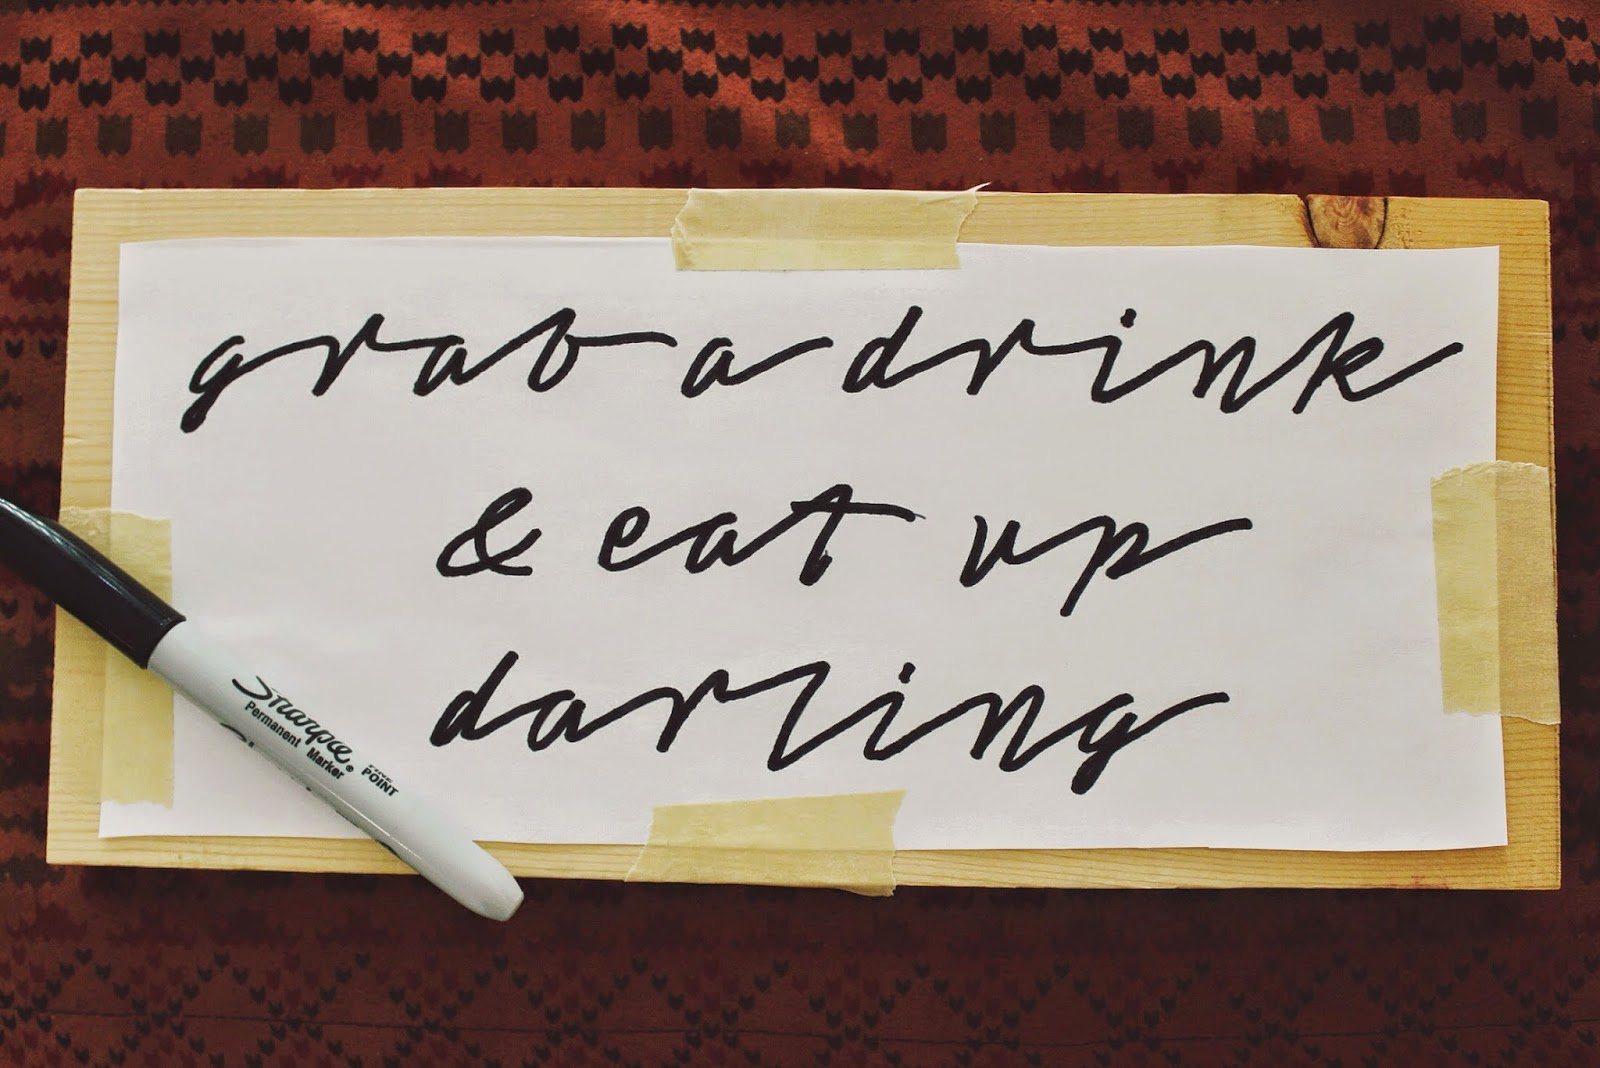 grab a drink
& eat up
darling
Sharpie®
Permanent Marker
FINE POINT